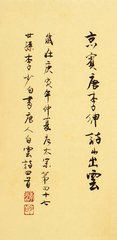 京賓唐李紳詩山出雲
歲在庚寅年仲夏月太宗第四十七
世孫李少白書唐人白雲詩四首